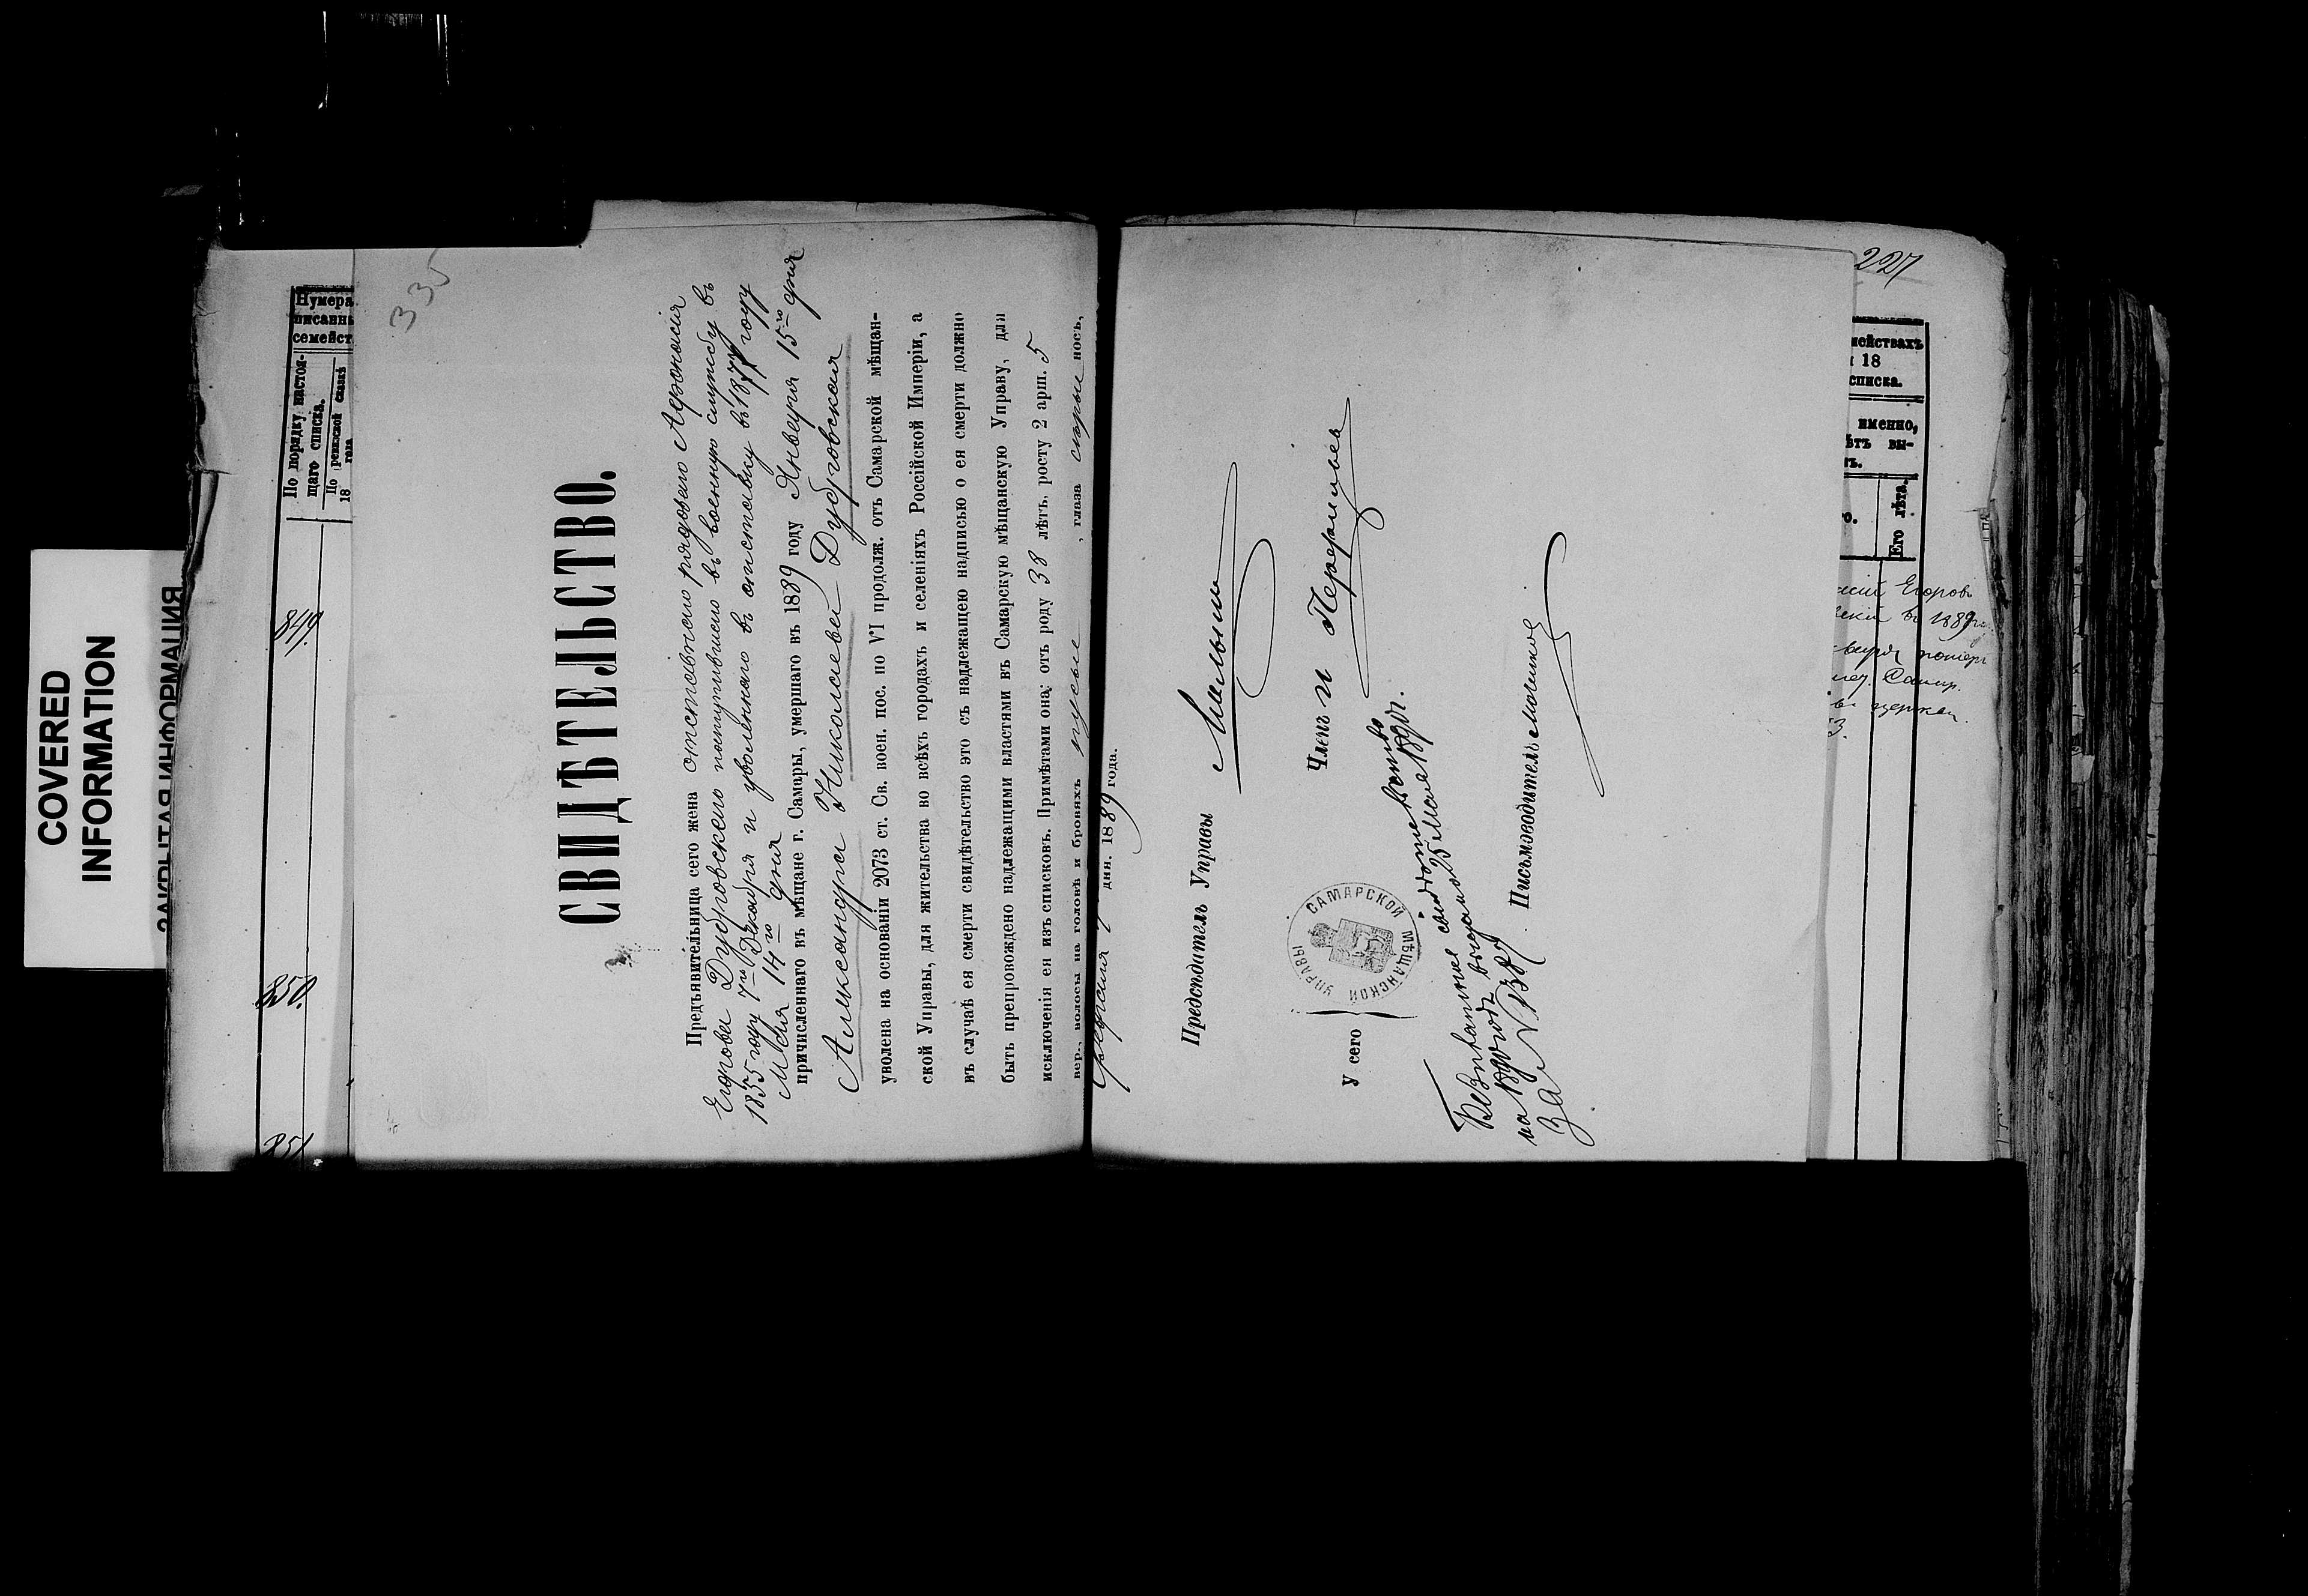 COVERED
INFORMATION
ЗАКРЫТАЯ ИНФОРМАЦИЯ
Нумера
писанн
семейст
По порядку настоя-
щаго списка.
По ревизской сказкѣ
18 года
849.
850.
851
335
СВИДѢТЕЛЬСТВО.
Предъявительница сего жена отставного рядового Афонасія
Егорова Дубровскаго поступившаго въ военную службу въ
1855 году 7го Декабря и уволеннаго въ отставку въ 1877 году
Мая 14го дня
причисленнаго въ мѣщане г. Самары, умершаго въ 1889 году Января 15го дня
Александра Николаева Дубровская
уволена на основаніи 2073 ст. Св. воен. пос. по VI продолж. отъ Самарской мѣщан-
ской Управы, для жительства во всѣхъ городахъ и селеніяхъ Россійской Имперіи, а
въ случаѣ ея смерти свидѣтельство это съ надлежащею надписью о ея смерти должно
быть препровождено надлежащими властями въ Самарскую мѣщанскую Управу, для
исключенія ея изъ списковъ. Примѣтами она: отъ роду 38 лѣтъ, росту 2 арш. 5
вер., волосы на головѣ и бровяхъ русые, глаза сѣрые носъ,
дня. 1889 года.
Предсѣдатель Управы
Членъ и
У сего
САМАРСКОЙ МѢЩАНСКОЙ УПРАВЫ
на
За №
Письмоводитель
227
мействахъ
18
списка.
именно,
ѣтъ вы-
ъ.
о.
Его лѣта.
Егоровъ
въ 1889г.
Самар.